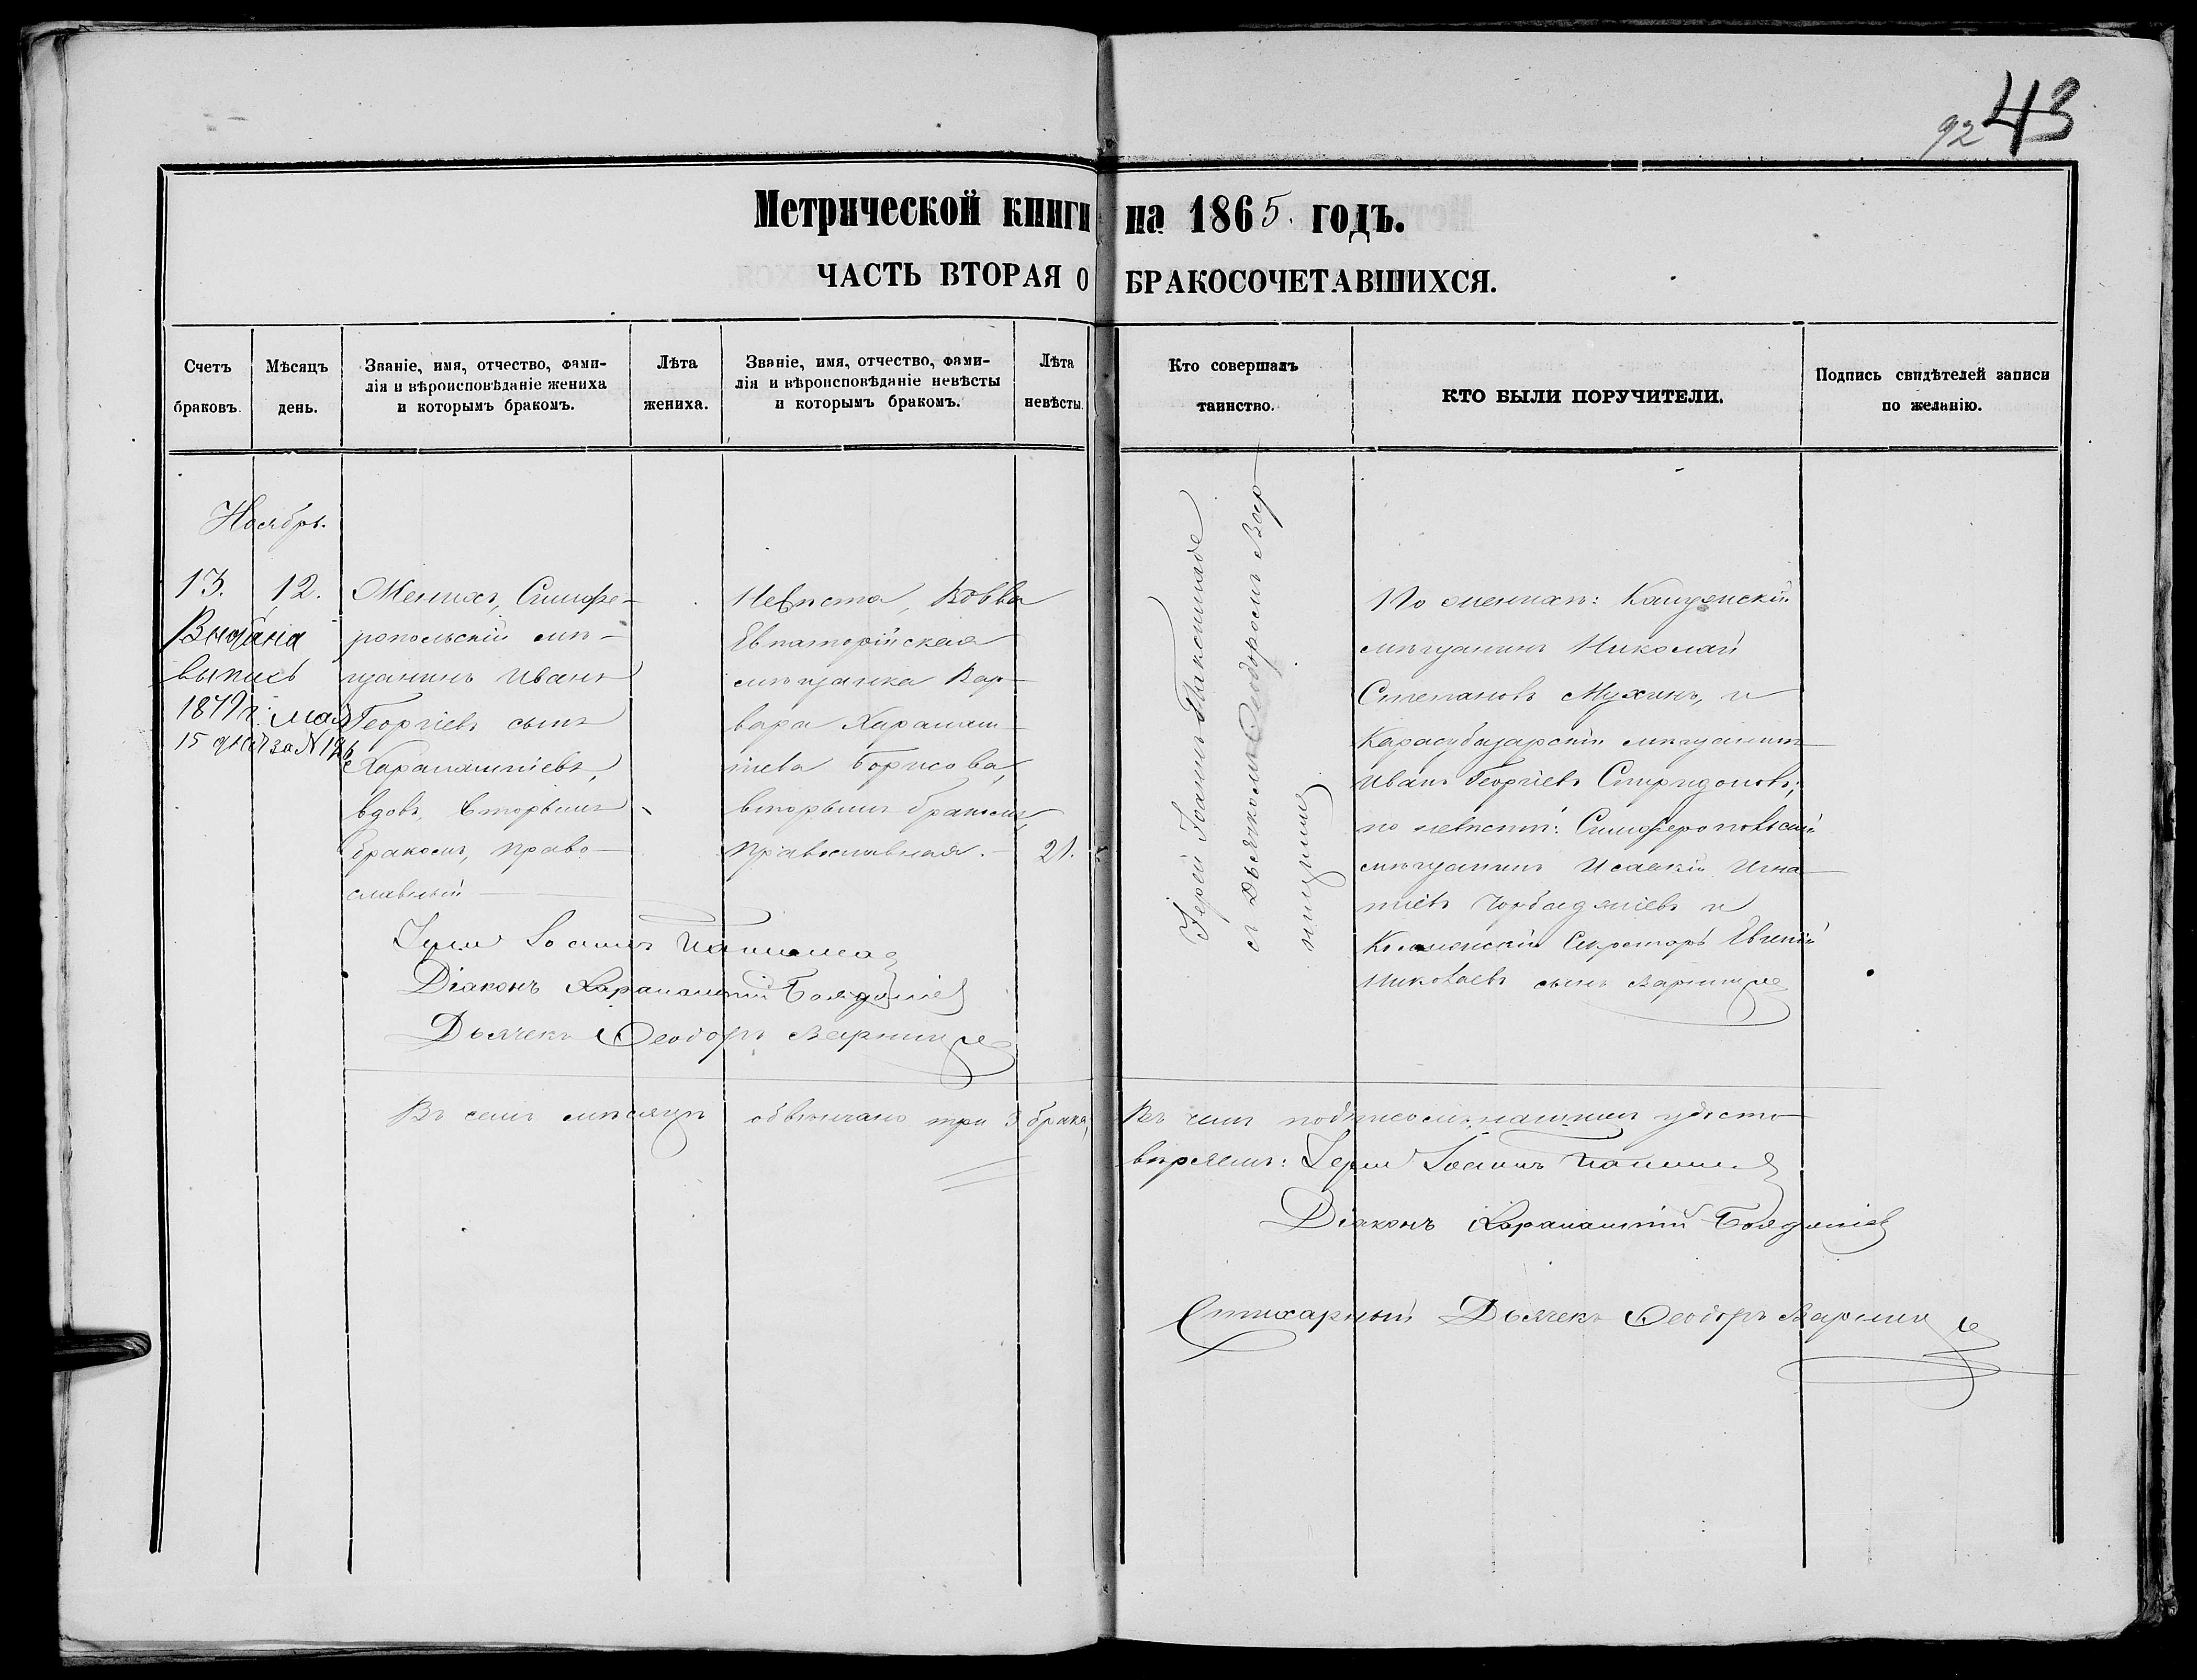 43
92
Метрической книги на 1865. годъ.
ЧАСТЬ ВТОРАЯ О БРАКОСОЧЕТАВШИХСЯ.
Счетъ браковъ.
Мѣсяцъ день.
Званіе, имя, отчество, фами-
лія и вѣроисповѣданіе жениха
и которымъ бракомъ.
Лѣта жениха.
Званіе, имя, отчество, фами-
лія и вѣроисповѣданіе невѣсты
и которымъ бракомъ.
Лѣта невѣсты.
Кто совершалъ
таинство.
КТО БЫЛИ ПОРУЧИТЕЛИ.
Подпись свидѣтелей записи
по желанію.
Ноябрь.
13. 12.
Выдана
выпись
15 за №
Женихъ, Симфе-
ропольскій мѣ-
щанинъ Иванъ
Георгіевъ сынъ
вдовъ, вторымъ
бракомъ, право-
славный
Невѣста, вдова
Евпаторійская
мѣщанка Вар-
вара Харлам-
піева Борисова,
вторымъ бракомъ,
православная.
21.
Іерей Іоаннъ
съ Дьячкомъ Ѳеодоромъ Вар-
ницкимъ
По женихѣ:
мѣщанинъ Николай
Степановъ Мухинъ, и
Карасубазарскій мѣщанинъ
Иванъ Георгіевъ Спиридоновъ;
по невѣстѣ: Симферопольскій
мѣщанинъ Игна-
тіевъ и
Секретарь Евгеній
Николаевъ сынъ
Іерей Іоаннъ
Діаконъ Харлампій
Дьячекъ Ѳеодоръ
Въ семъ мѣсяцѣ обвѣнчано три 3 брака,
Въ чемъ подписомъ нашимъ удосто-
вѣряемъ: Іерей Іоаннъ
Діаконъ Харлампій
Стихарный Дьячекъ Ѳеодоръ